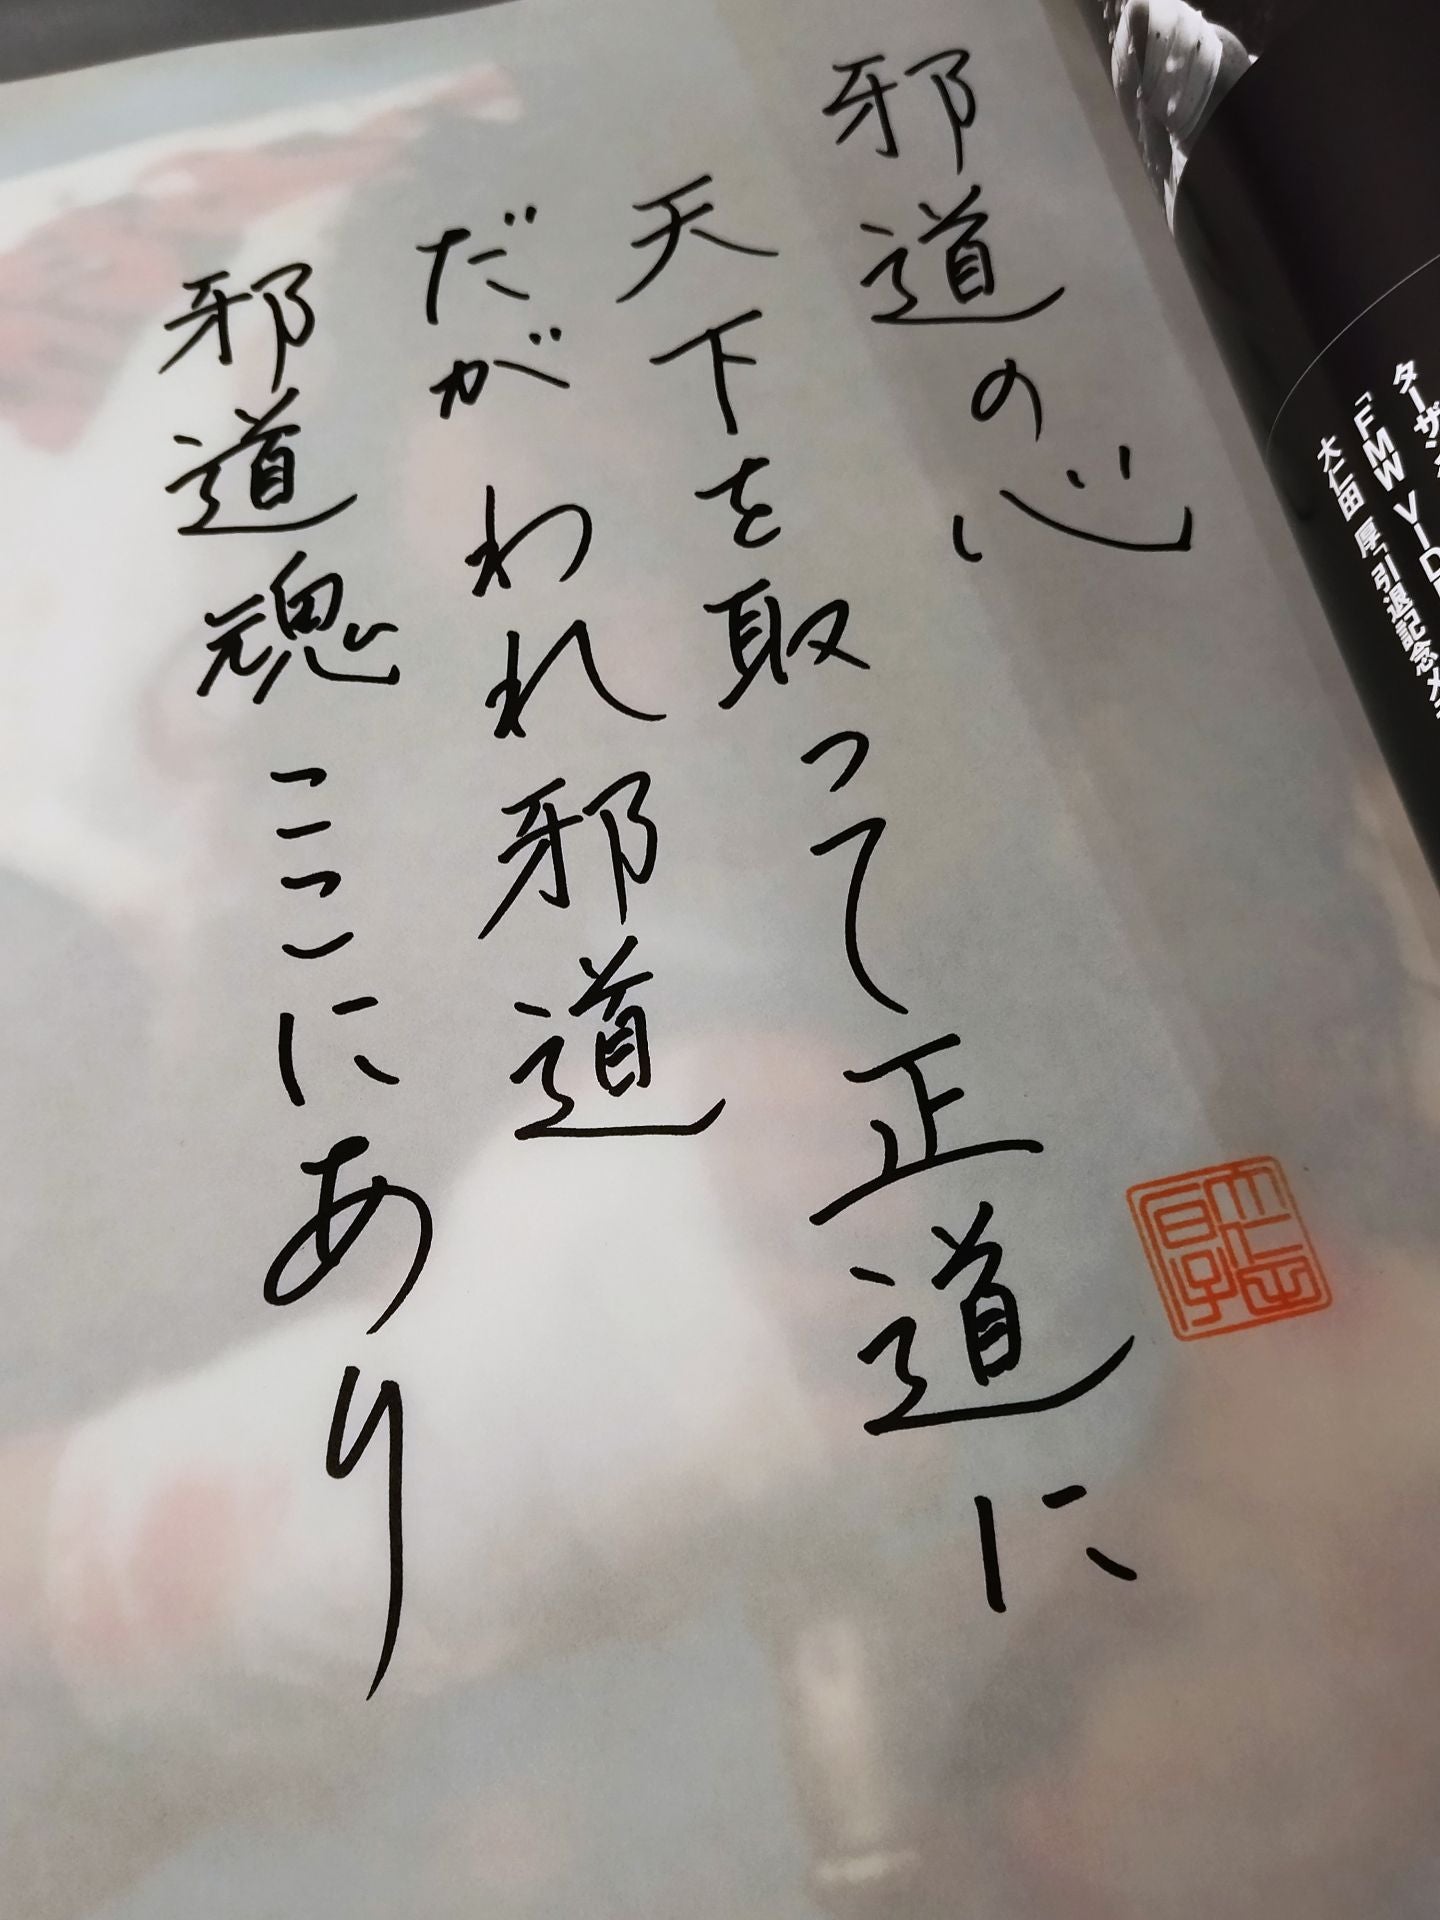 邪道の心
天下を取って正道に
だが われ邪道
邪道魂ここにあり
大仁田厚
ターザン
「FMW VID
大仁田 厚「引退記念メ